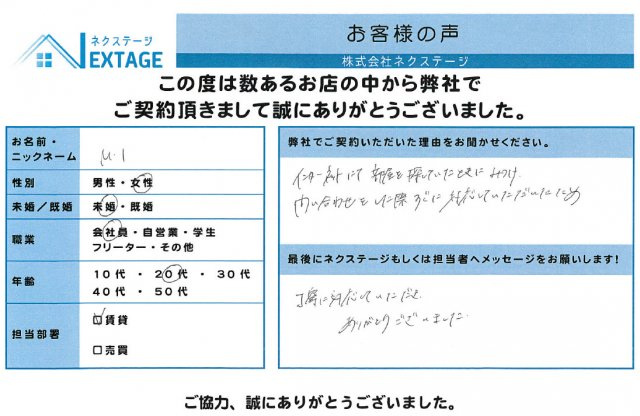 ネクステージ
NEXTAGE
お客様の声
株式会社ネクステージ
この度は数あるお店の中から弊社で
ご契約頂きまして誠にありがとうございました。
お名前・
ニックネーム
μ.1
性別
男性・女性
未婚/既婚
未婚・既婚
職業
会社員・自営業・学生
フリーター・その他
年齢
10代 ・ 20代 ・ 30代
40代 ・ 50代
担当部署
☑賃貸
□売買
弊社でご契約いただいた理由をお聞かせください。
インターネットにて 部屋を探していたときにみつけ
問い合わせをした際すぐに対応していただいたため
最後にネクステージもしくは担当者へメッセージをお願いします!
丁寧に対応していただき
ありがとうございました
ご協力、誠にありがとうございました。